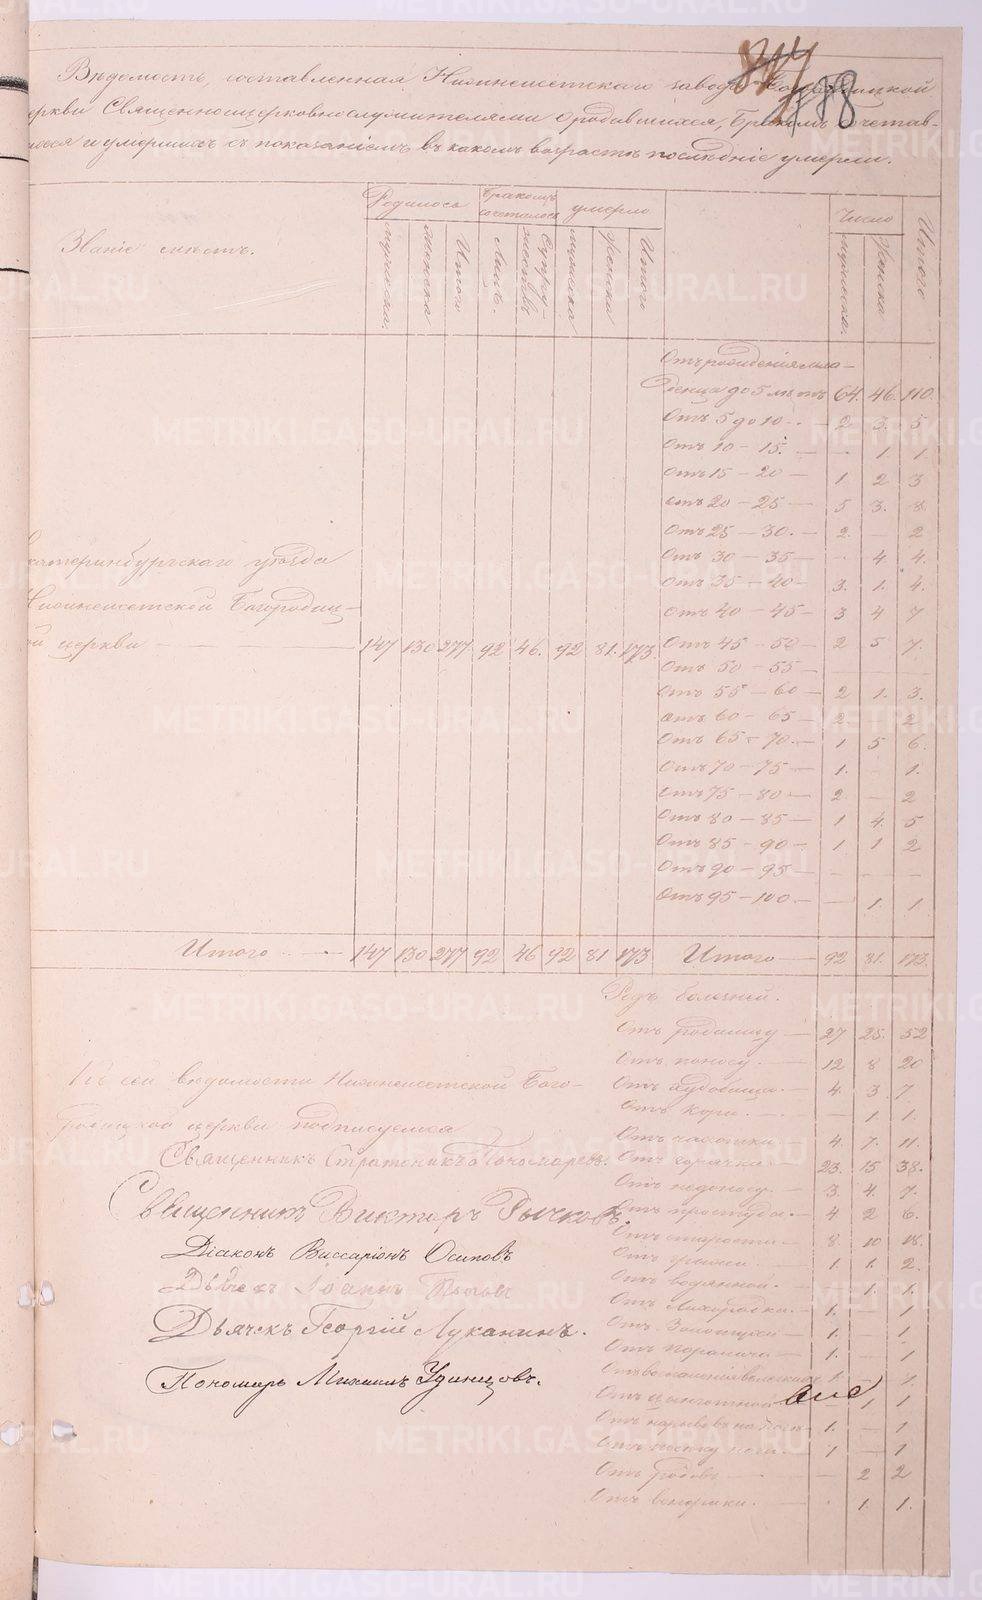 814
778
Вѣдомость, составленная Нижнеисетскаго завода Богородицкой
еркви Священноцерковнослужителями о родившихся, бракомъ сочетав-
шихся и умершихъ съ показаніемъ въ какомъ возрастѣ послѣдніе умерли.
Званіе мѣстъ.
Родилось Бракомъ сочеталось умерло Число Итого
мужеска женска Итого Лицъ Супружествъ мужеска женска Итого мужеска. женска
Отъ рожденія мла-
денца до 5 лѣтъ 64. 46. 110.
Отъ 5 до 10 — 2. 3. 5
Отъ 10 — 15. — - 1 1.
Отъ 15 — 20 — 1 2 3
отъ 20 — 25 — 5 3. 8.
Отъ 25 — 30. — 2. — 2
Отъ 30 — 35 — - 4. 4.
Отъ 35 — 40 — 3. 1. 4.
Отъ 40 — 45 — 3 4 7
катеринбургскаго уѣзда
Нижнеисетской Богородиц-
ой церкви — 147 130 277 92 46. 92 81. 173.
Отъ 45 — 50 — 2 5 7.
Отъ 50 — 55 —
Отъ 55 — 60 — 2 1. 3.
Отъ 60 — 65 — 2. 2
Отъ 65 — 70. — 1 5 6.
Отъ 70 — 75 — 1. 1.
Отъ 75 — 80 — 2. — 2
Отъ 80 — 85 — 1 4. 5
Отъ 85 — 90 — 1 1 2
Отъ 90 — 95 — - - -
Отъ 95 — 100. — — 1. 1
Итого — 147 130 277 92 46 92 81 173 Итого — 92 81. 173.
Родъ болѣзней.
Отъ родимцу — 27 25. 52
Отъ поносу. — 12 8 20
Отъ худобища. — 4. 3. 7.
Отъ кори. — — 1. 1.
Отъ чахотки 4. 7. 11.
Отъ горячки 23. 15 38.
Отъ недоносу. — 3. 4. 7.
Отъ простуды. — 4 2 6.
Отъ старости. 8 10 18.
Отъ 1. 1. 2.
Отъ водянкой. 1. 1.
Отъ Лихорадки. — 1. 1
Отъ Золотухи — 1. 1.
Отъ паралича 1. — 1
Отъ воспаленія 1. — 1.
Отъ цынготной — 1 1
Отъ 1. — 1
Отъ 1 — 1
Отъ родовъ — — 2 2
Отъ — 1. 1.
Къ сей вѣдомости Нижнеисетской Бого-
родицкой церкви подписуемся
Священникъ Стратоникъ Пономаревъ.
Священникъ Викторъ Рычковъ.
Діаконъ Виссаріонъ Осиповъ
Дьячекъ Іоаннъ Поповъ
Дьячекъ Георгій Луканинъ.
Пономарь Михаилъ Удинцовъ.
METRIKI.GASO-URAL.RU